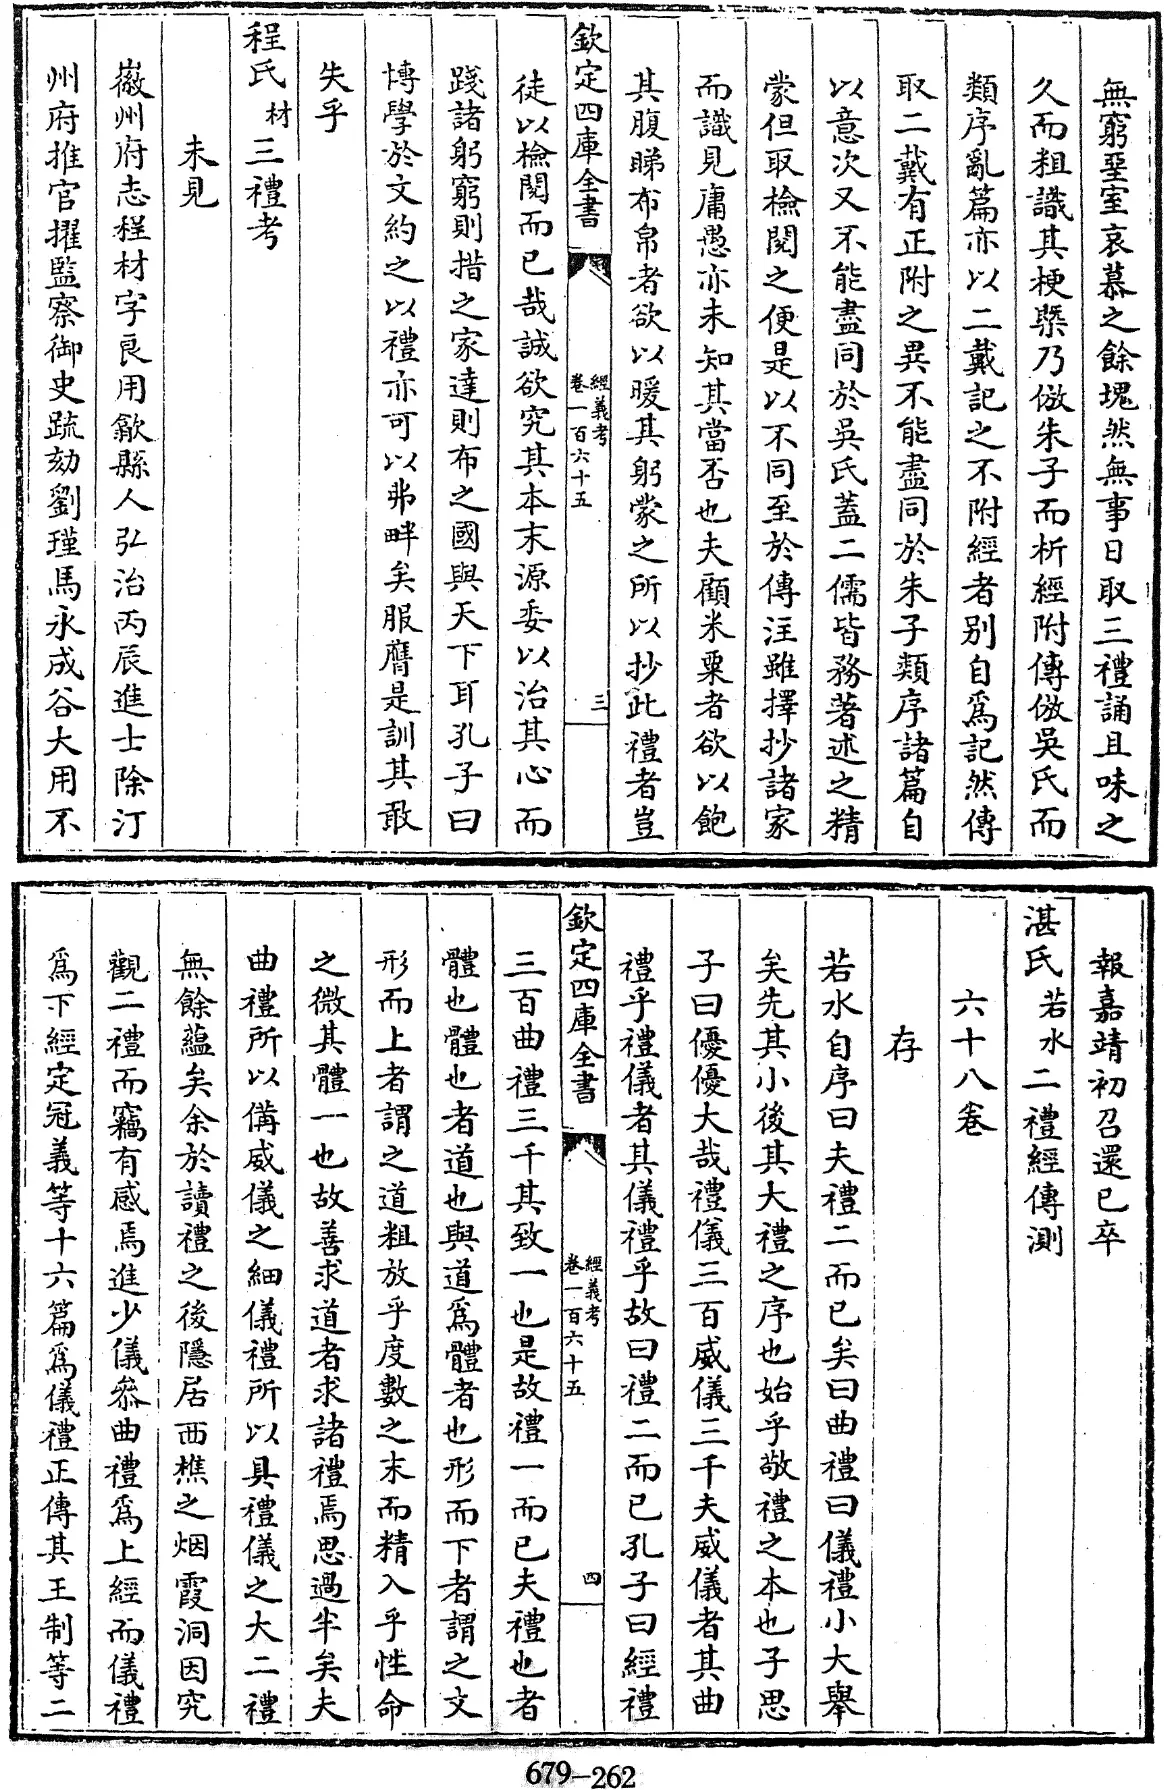 無窮堊室哀慕之餘塊然無事日取三禮誦且味之
久而粗識其梗槩乃倣朱子而析經附傳倣吳氏而
類序亂篇亦以二戴記之不附經者别自爲記然傳
取二戴有正附之異不能盡同於朱子類序諸篇自
以意次又不能盡同於吳氏蓋二儒皆務著述之精
蒙但取檢閱之便是以不同至於傳注雖擇抄諸家
而識見庸愚亦未知其當否也夫顧米粟者欲以飽
其腹睇布帛者欲以暖其躬蒙之所以抄此禮者豈
欽定四庫全書
經義考
卷一百六十五
三
徒以檢閱而已哉誠欲究其本末源委以治其心而
踐諸躬窮則措之家達則布之國與天下耳孔子曰
博學於文約之以禮亦可以弗畔矣服膺是訓其敢
失乎
程氏材三禮考
未見
徽州府志程材字良用歙縣人弘治丙辰進士除汀
州府推官擢監察御史疏劾劉瑾馬永成谷大用不
報嘉靖初召還已卒
湛氏若水二禮經傳測
六十八卷
存
若水自序曰夫禮二而已矣曰曲禮曰儀禮小大舉
矣先其小後其大禮之序也始乎敬禮之本也子思
子曰優優大哉禮儀三百威儀三千夫威儀者其曲
禮乎禮儀者其儀禮乎故曰禮二而已孔子曰經禮
欽定四庫全書
經義考
卷一百六十五
四
三百曲禮三千其致一也是故禮一而已夫禮也者
體也體也者道也與道爲體者也形而下者謂之文
形而上者謂之道粗放乎度數之末而精入乎性命
之微其體一也故善求道者求諸禮焉思過半矣夫
曲禮所以備威儀之細儀禮所以具禮儀之大二禮
無餘蘊矣余於讀禮之後隱居西樵之烟霞洞因究
觀二禮而竊有感焉進少儀叅曲禮爲上經而儀禮
爲下經定冠義等十六篇爲儀禮正傳其王制等二
679-262